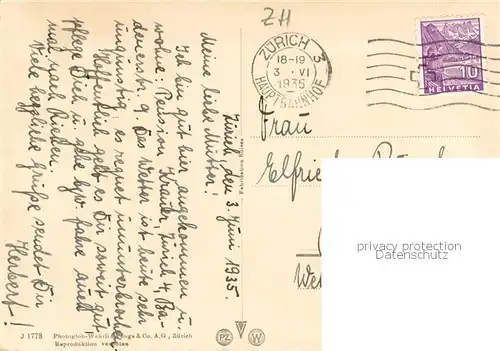 ZH
ZÜRICH 3
18-19
3. VI
1935
HAUPTBAHNHOF
10
HELVETIA
Zürich, den 3. Juni 1935.
Meine liebe Mutter!
Ich bin gut hier angekommen u.
wohne: Pension Krauer, Zürich 4, Ba-
denerstr. 9. Das Wetter ist heute sehr
ungünstig; es regnet ununterbrochen.
Hoffentlich geht es Dir soweit gut
pflege Dich u. gehe
mal nach
Viele herzliche Grüße sendet Dir
Herbert!
Frau
Elfriede
privacy protection
watermark
J 1778 Photoglob-Wehrli & Co. A.G., Zürich
Reproduktion verboten
PZ W